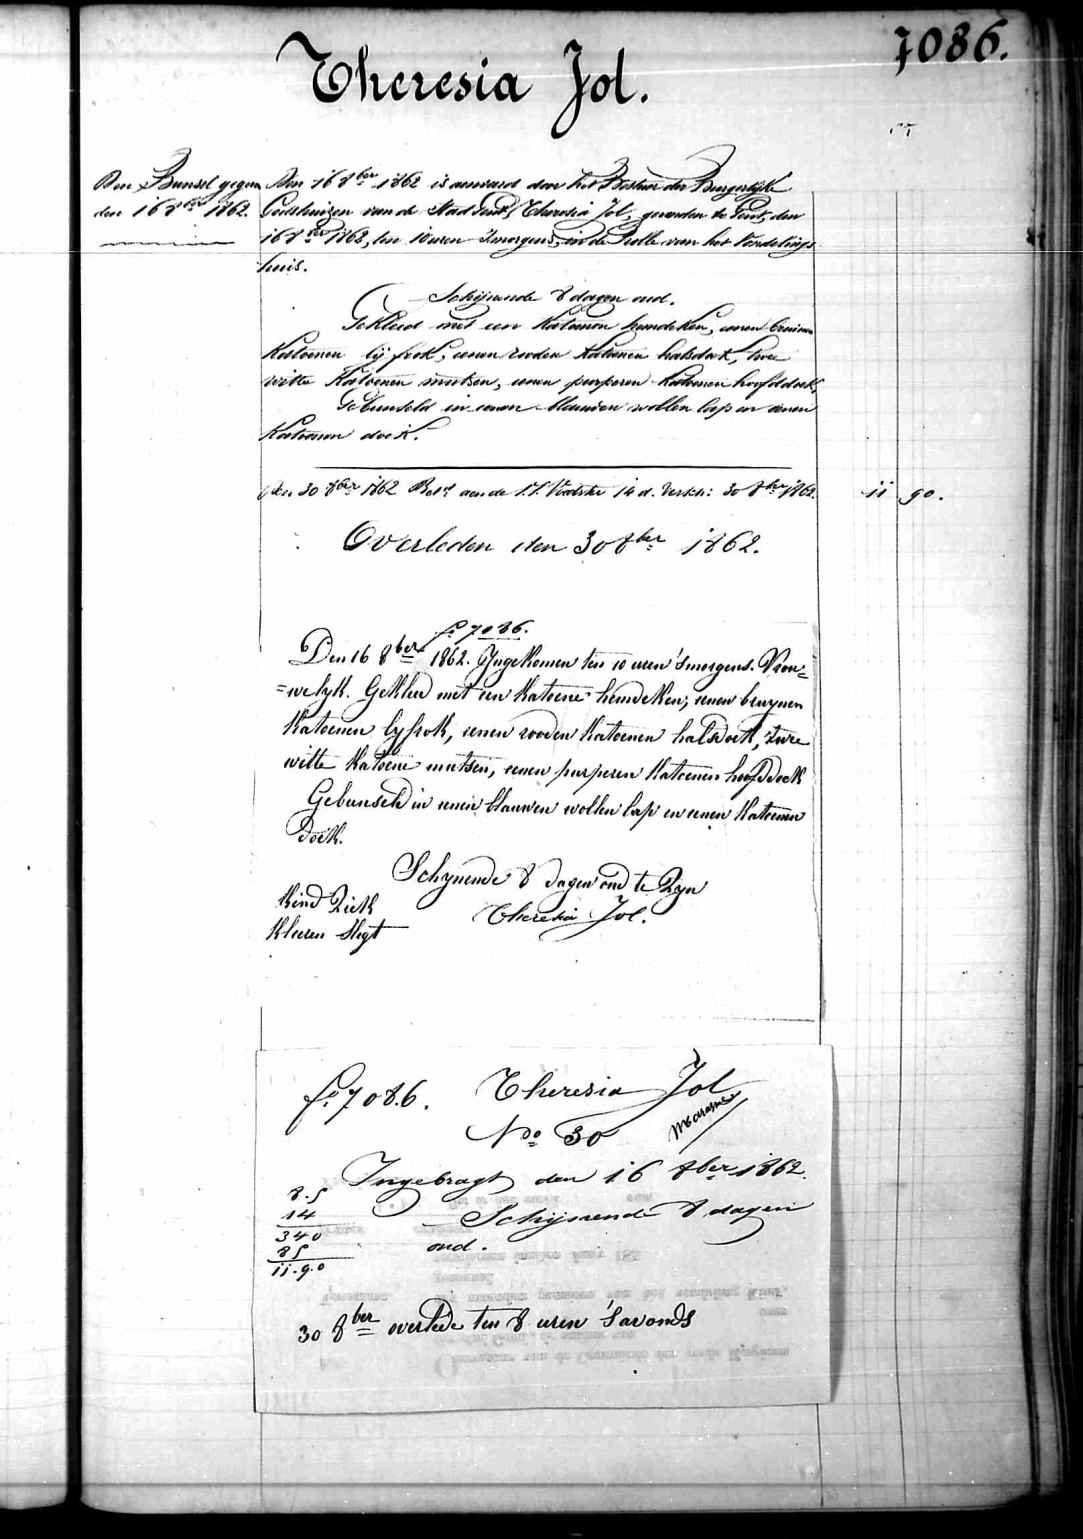 7086.
Theresia Jol.
Den Bunsel gegeven
den 16 8ber 1862.
Den 16 8ber 1862 is aenvaerd door het Bestuur der Burgerlijke
Godshuizen van de Stad Gent, Theresia Jol, gevonden te Gent, den
16 8ber 1862, ten 10 uren 'smorgens, in de Rolle van het Vondelings
huis.
Schijnende 8 dagen oud.
Gekleed met een Katoenen hemdeken, eenen bruinen
Katoenen lijfrok, eenen rooden Katoenen halsdoek, twee
witte Katoenen mutsen, eenen purperen Katoenen hoofddoek,
Gebunseld in eenen blauwen wollen lap en eenen
Katoenen doek.
den 30 8ber 1862 Betd aen de 14 d. 30 8ber 1862. 11 90.
Overleden den 30 8ber 1862.
fo 7086.
Den 16 8ber 1862. Ingekomen ten 10 uren 'smorgens. Vrou=
=welyk. Gekleed met een Katoene hemdeken, eenen bruynen
Katoenen lyfrok, eenen rooden Katoenen halsdoek, twee
witte Katoene mutsen, eenen purperen Katoenen hoofddoek
Gebunseld in eenen blauwen wollen lap en eenen Katoenen
doek.
Schynende 8 dagen oud te Zyn
Kind Ziek
Theresia Jol.
Kleeren Slegt
fo 7086. Theresia Jol
No 30
Marasme
Ingebragt den 16 8ber 1862.
Schijnende 8 dagen
oud.
8.5
14
340
85
11.90
30 8ber overlede ten 8 uren 'savonds